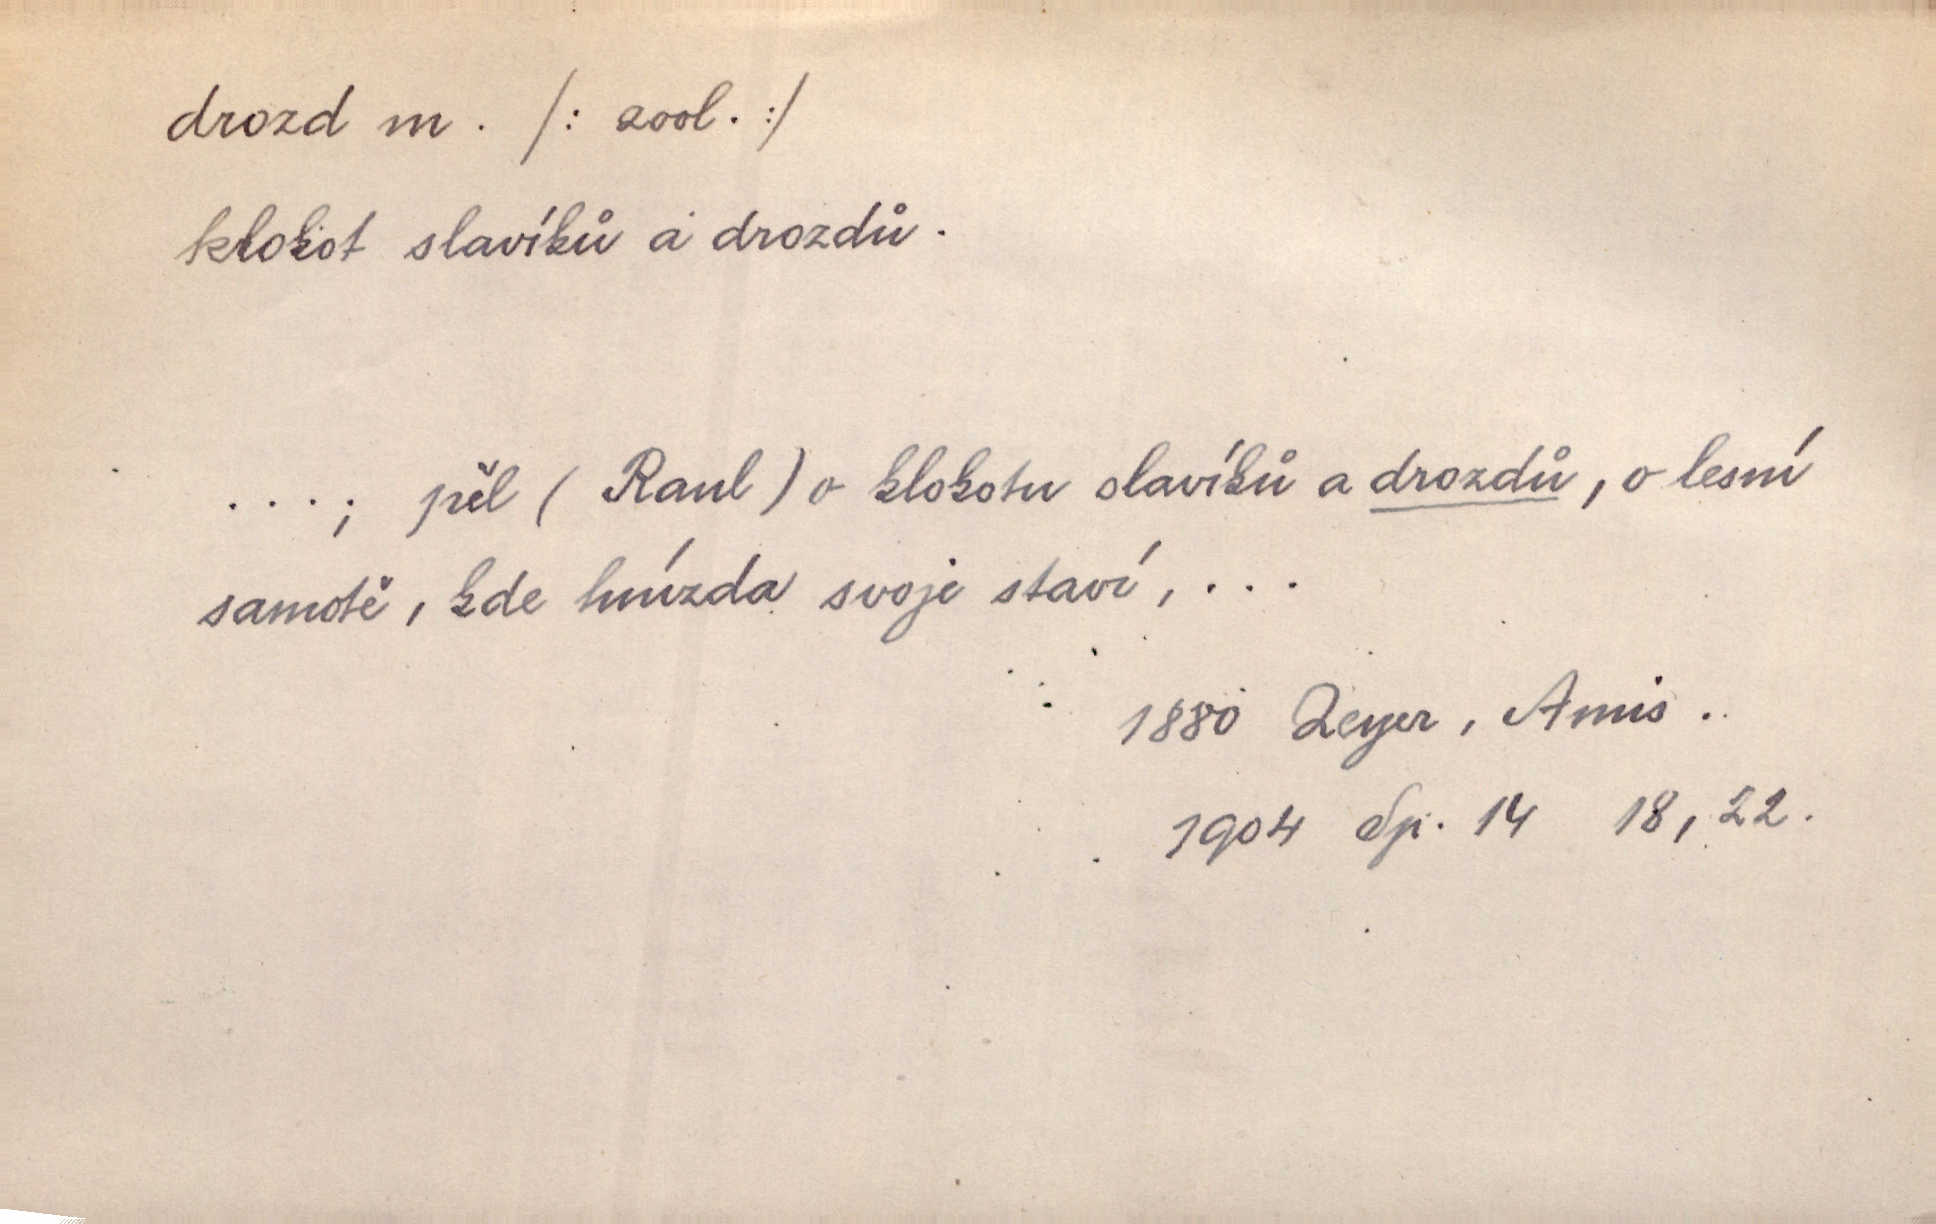 drozd m. /: zool. :/
klokot slavíků a drozdů.
. . . . ; pěl ( Raul ) o klokotu slavíků a drozdů, o lesní
samotě, kde hnízda svoje staví, . . .
1880 Zeyer, Amis.
1904 Sp. 14 18, 22.